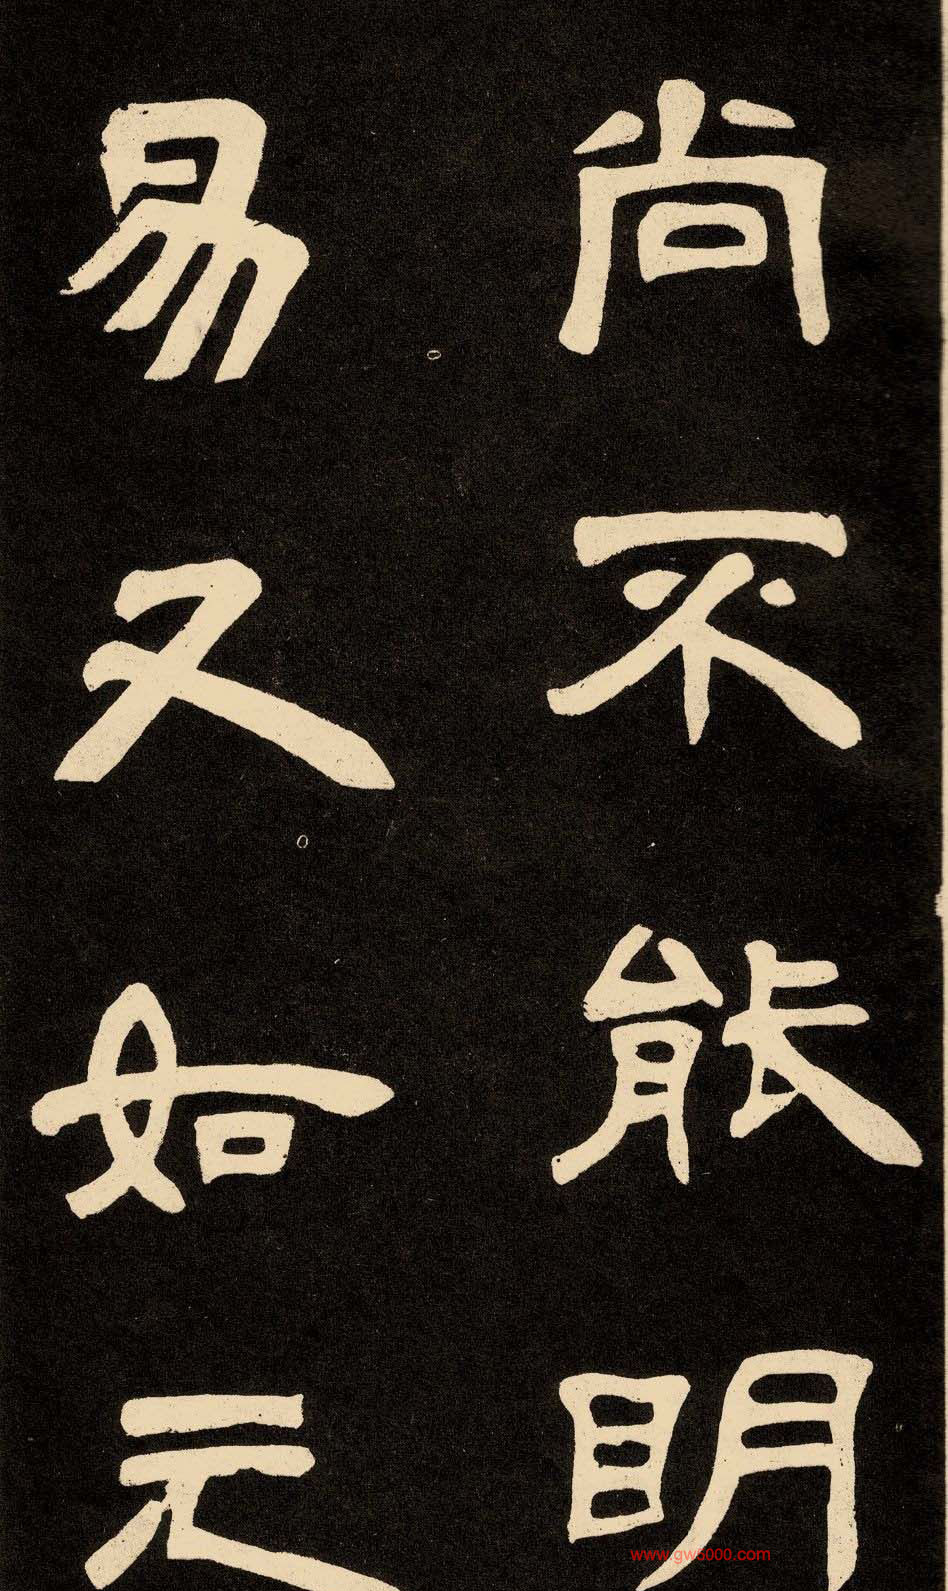 尚不能明
易又如元
www.gw5000.com